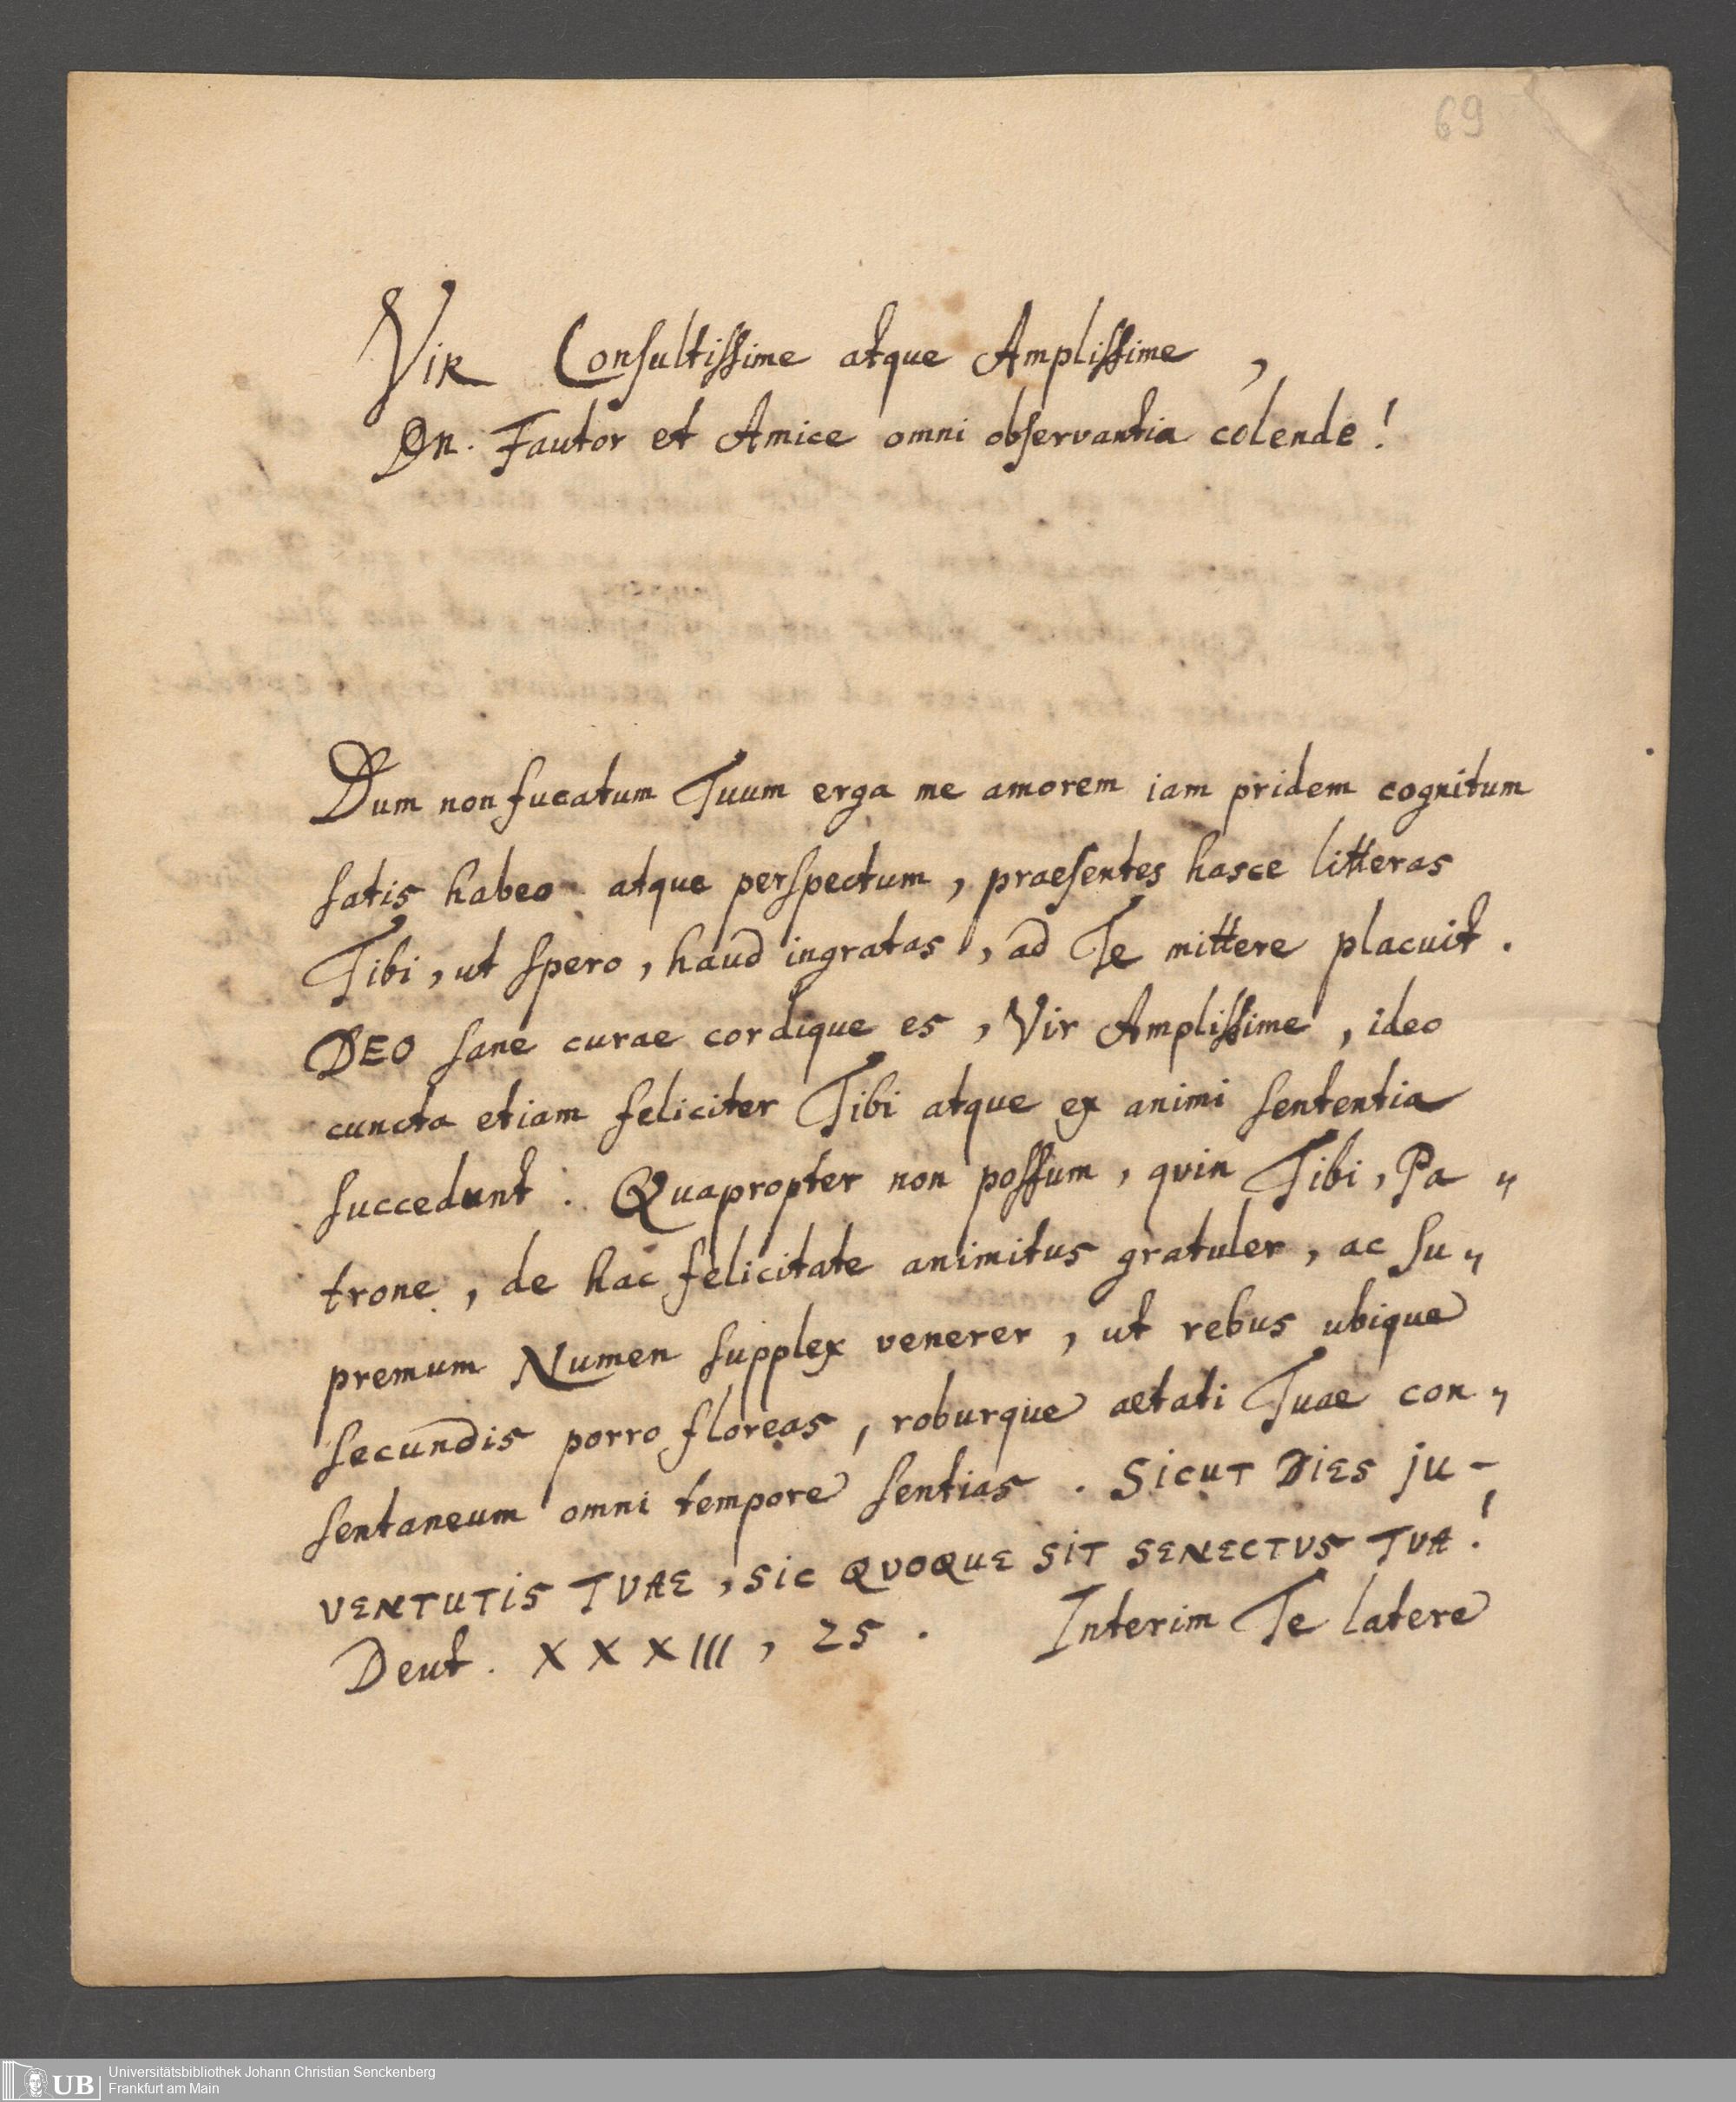 69
Vir Consultissime atque Amplissime,
Dn. Fautor et Amice omni observantia colende!
Dum non fucatum Tuum erga me amorem iam pridem cognitum
satis habeo atque perspectum, praesentes hasce litteras
Tibi, ut spero, haud ingratas, ad Te mittere placuit.
DEO sane curae cordique es, Vir Amplissime, ideo
cuncta etiam feliciter Tibi atque ex animi sententia
succedunt. Quapropter non possum, quin Tibi, Pa„
trone, de hac felicitate animitus gratuler, ac su„
premum Numen supplex venerer, ut rebus ubique
secundis porro floreas, roburque aetati Tuae con„
sentaneum omni tempore sentias. SICUT DIES JU-
VENTUTIS TVAE, SIC QVOQUE SIT SENECTVS TVA!
Deut. XXXIII, 25. Interim Te latere
UB
Universitätsbibliothek Johann Christian Senckenberg
Frankfurt am Main